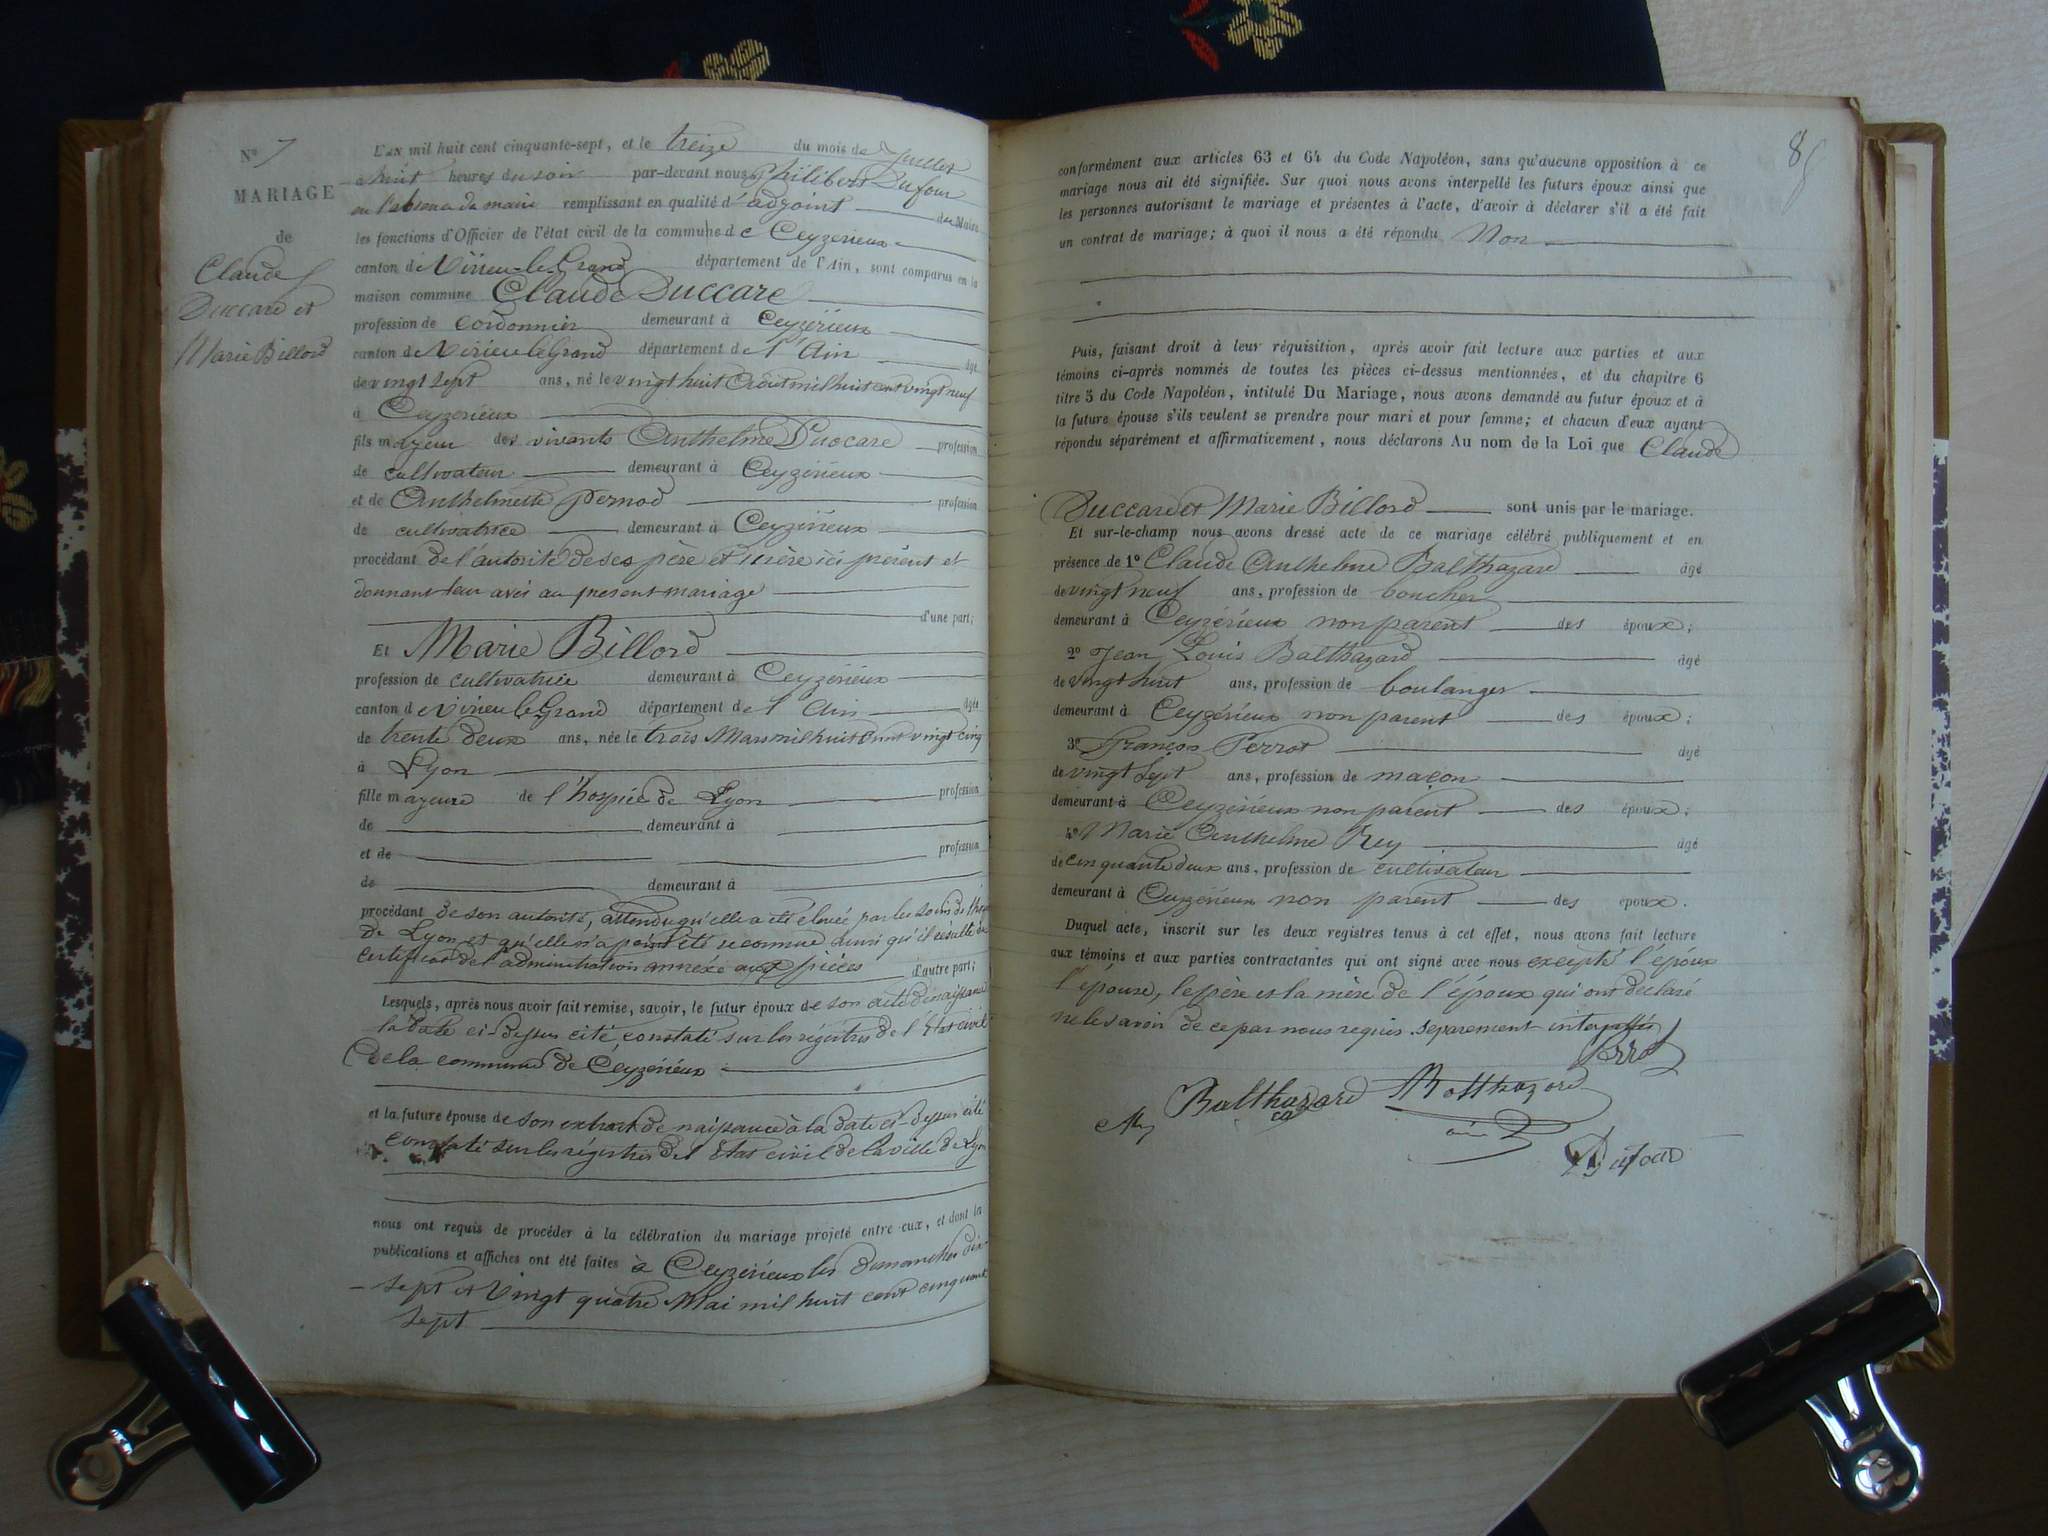 N° 7
MARIAGE
de
Claude
Duccare et
Marie Billord
L'an mil huit cent cinquante-sept, et le treize du mois de Juillet
à huit heures du soir par-devant nous Philibert Dufour
en l'absence du maire remplissant en qualité d'adjoint du Maire
les fonctions d'Officier de l'état civil de la commune de Ceyzerieux
canton de Virieu-le-Grand département de l'Ain, sont comparus en la
maison commune Claude Duccare
profession de cordonnier demeurant à Ceyzérieux
canton de Virieu le Grand département de l'Ain âgé
de vingt sept ans, né le vingt huit Août mil huit cent vingt neuf
à Ceyzerieux
fils mayeur des vivants Anthelme Duccare profession
de cultivateur demeurant à Ceyzérieux
et de Anthelmette Pernod profession
de cultivatrice demeurant à Ceyzérieux
procédant de l'autorité de ses père et mère ici présent et
donnant leur avis au present mariage
d'une part;
Et Marie Billord
profession de cultivatrice demeurant à Ceyzérieux
canton de Virieu le Grand département de l'Ain âgée
de trente deux ans, née le trois Mars mil huit cent vingt cinq
à Lyon
fille mayeure de l'hospice de Lyon profession
de demeurant à
et de profession
de demeurant à
procédant de son autorité, attendu qu'elle a été élevée par les soins de
de Lyon et qu'elle n'a point été reconnue ainsi qu'il résulte du
certificat de l'administration annexé aux pièces d'autre part;
Lesquels, après nous avoir fait remise, savoir, le futur époux de son acte de naissance
la date ci-dessus cité, constaté sur les régistres de l'Etat civil
de la commune de Ceyzérieux
et la future épouse de son extrait de naissance à la date ci-dessus cité
constaté sur les régistres de l'Etat civil de la ville de Lyon
nous ont requis de procéder à la célébration du mariage projeté entre eux, et dont les
publications et affiches ont été faites à Ceyzerieux les dimanches dix-
sept et vingt quatre Mai mil huit cent cinquante
sept
85
conformément aux articles 63 et 64 du Code Napoléon, sans qu'aucune opposition à ce
mariage nous ait été signifiée. Sur quoi nous avons interpellé les futurs époux ainsi que
les personnes autorisant le mariage et présentes à l'acte, d'avoir à déclarer s'il a été fait
un contrat de mariage; à quoi il nous a été répondu Non
Puis, faisant droit à leur réquisition, après avoir fait lecture aux parties et aux
témoins ci-après nommés de toutes les pièces ci-dessus mentionnées, et du chapitre 6
titre 5 du Code Napoléon, intitulé Du Mariage, nous avons demandé au futur époux et à
la future épouse s'ils veulent se prendre pour mari et pour femme; et chacun d'eux ayant
répondu séparément et affirmativement, nous déclarons Au nom de la Loi que Claude
Duccare et Marie Billord sont unis par le mariage.
Et sur-le-champ nous avons dressé acte de ce mariage célébré publiquement et en
présence de 1° Claude Anthelme Balthazard âgé
de vingt neuf ans, profession de boucher
demeurant à Ceyzérieux non parent des époux;
2° Jean Louis Balthazard âgé
de vingt huit ans, profession de boulanger
demeurant à Ceyzérieux non parent des époux;
3° François Perrot âgé
de vingt sept ans, profession de maçon
demeurant à Ceyzérieux non parent des époux;
4° Marie Anthelme Rey âgé
de cinquante deux ans, profession de cultivateur
demeurant à Ceyzérieux non parent des époux.
Duquel acte, inscrit sur les deux registres tenus à cet effet, nous avons fait lecture
aux témoins et aux parties contractantes qui ont signé avec nous excepté l'époux
l'épouse, le père et la mère de l'époux qui ont déclaré
ne le savoir de ce par nous requis séparement interpellés
Perrot
Balthazard Balthazard
ainé
Dufour